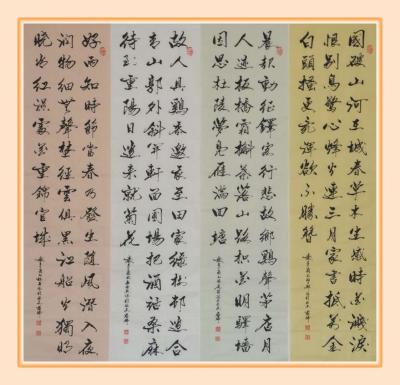 國破山河在城春草木深感時花濺淚
恨別鳥驚心烽火連三月家書抵萬金
白頭搔更短渾欲不勝簪
晨起動征鐸客行悲故鄉雞聲茅店月
人迹板橋霜槲葉落山路枳花明驛牆
因思杜陵夢鳧雁滿回塘
故人具雞黍邀我至田家綠樹村邊合
青山郭外斜開軒面圃場把酒話桑麻
待到重陽日還來就菊花
好雨知時節當春乃發生隨風潛入夜
潤物細無聲野徑雲俱黑江船火獨明
曉看紅濕處花重錦官城